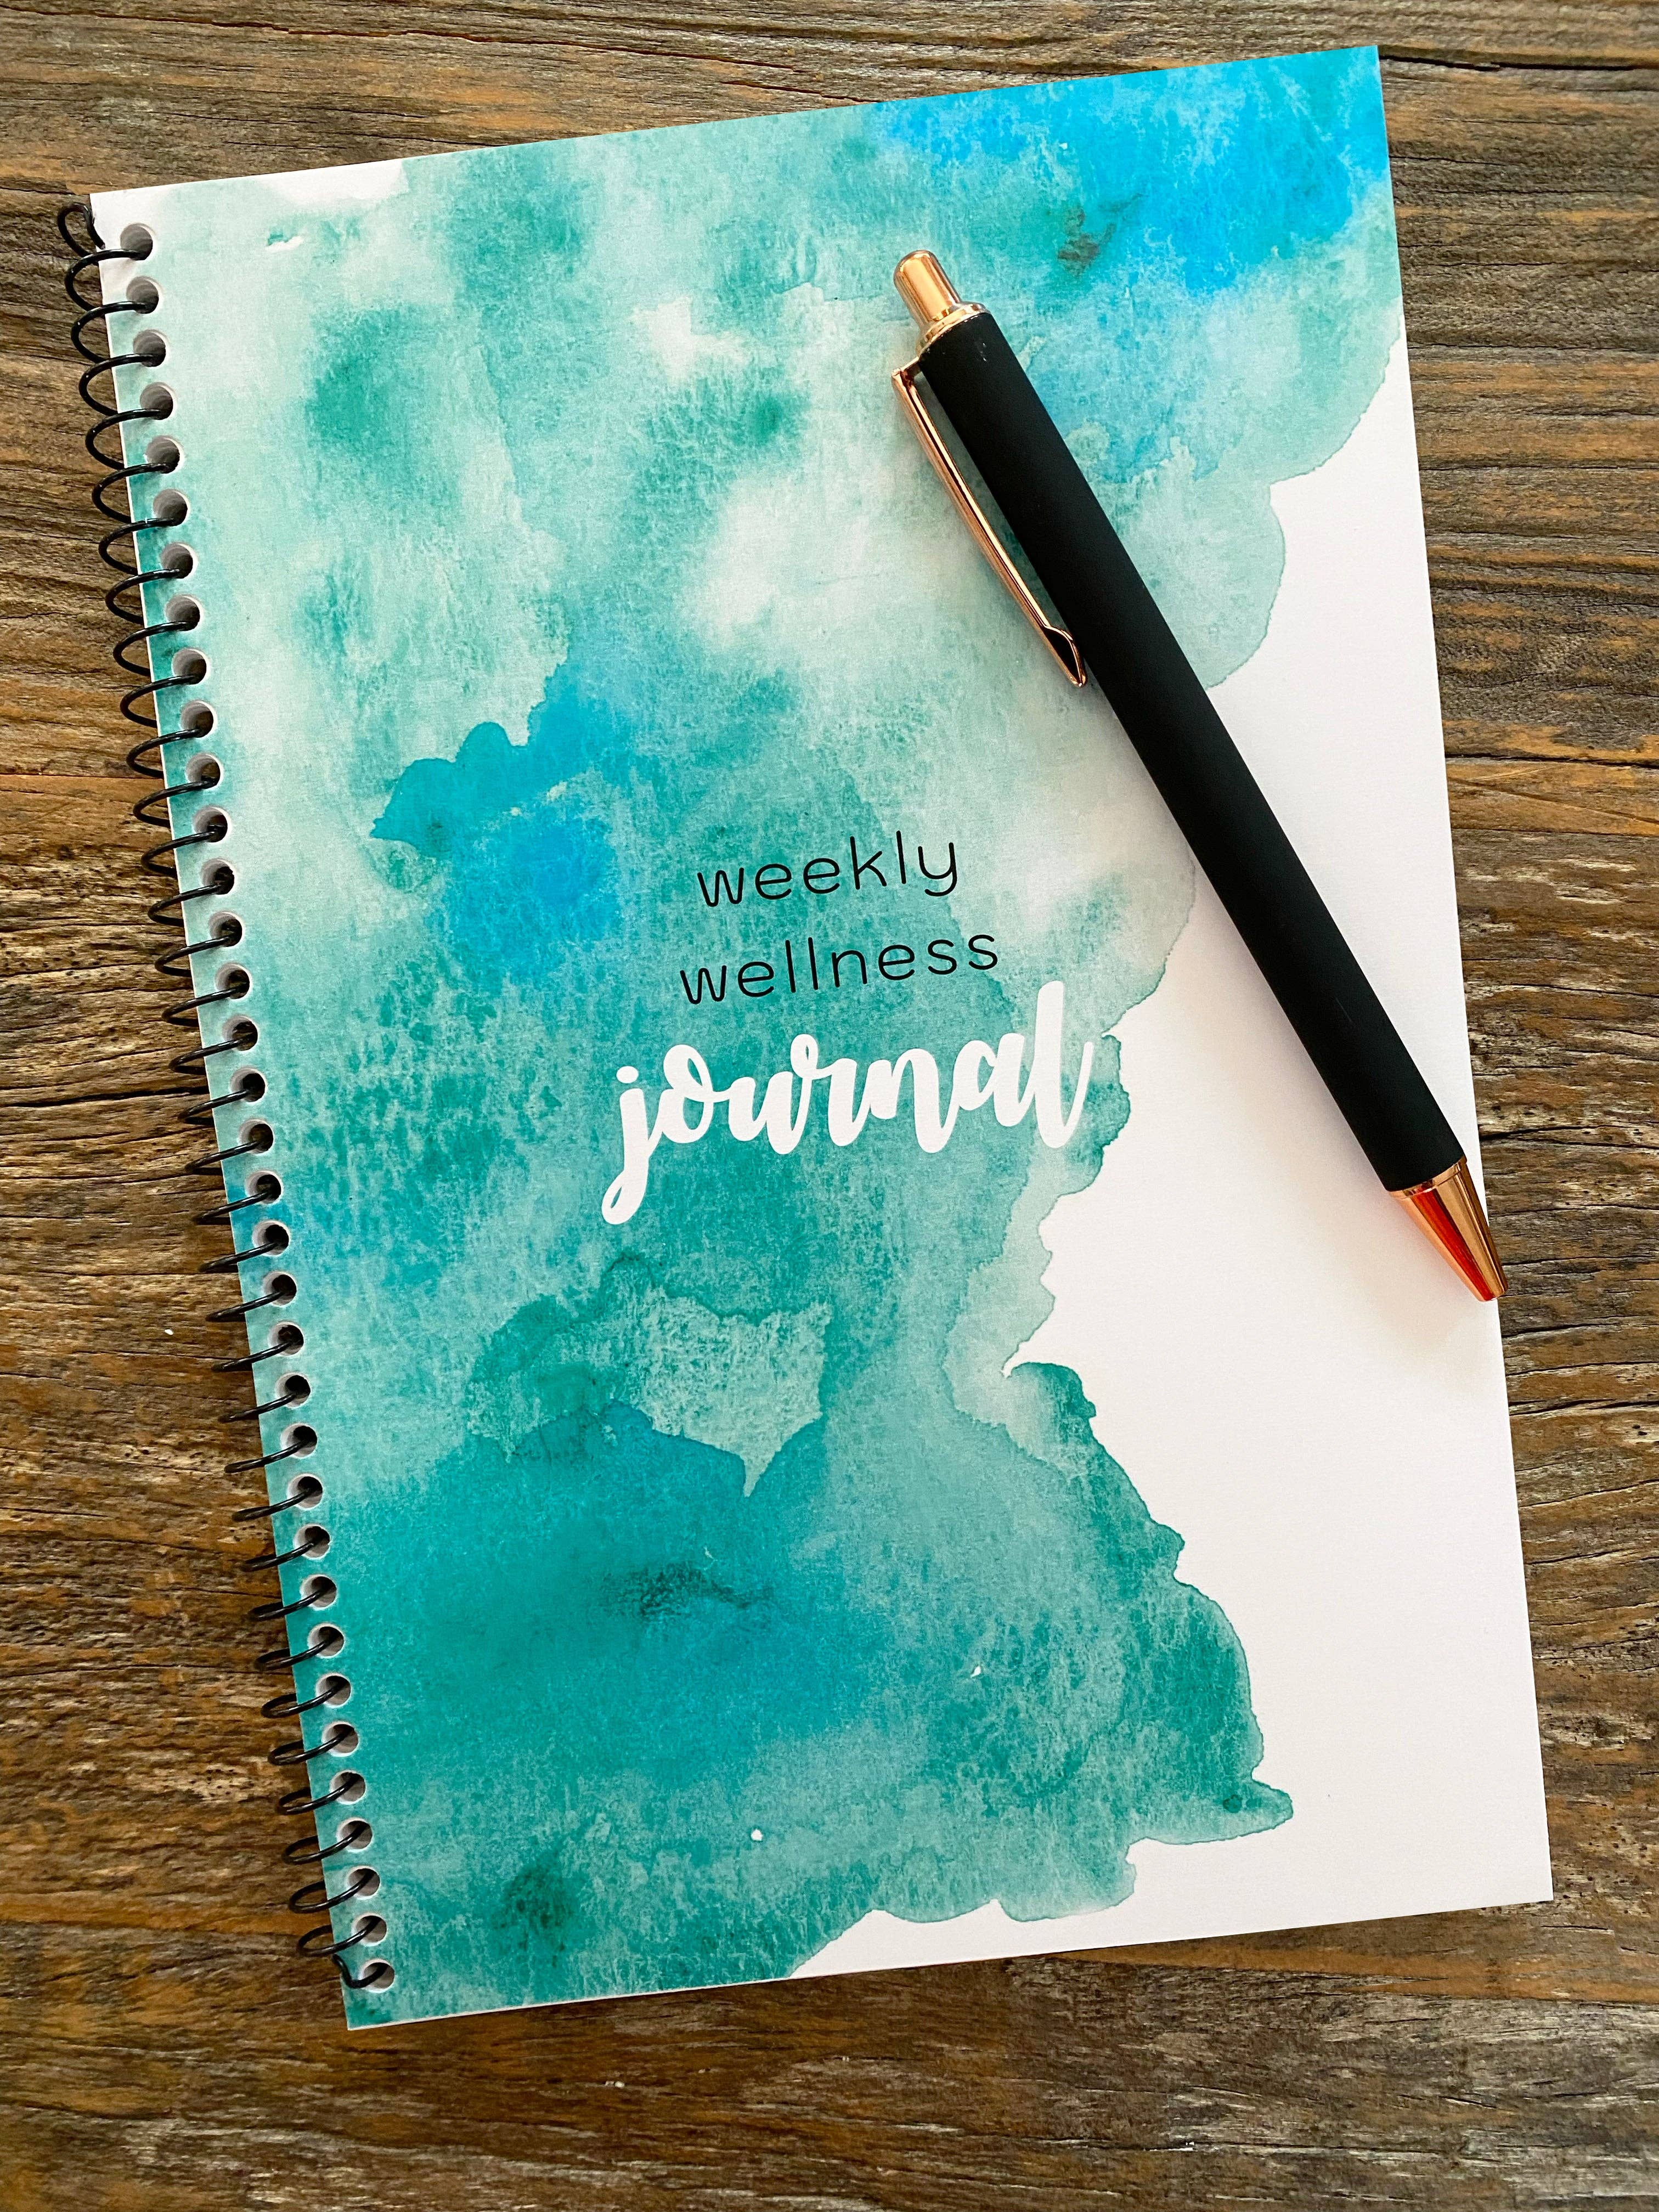 weekly
wellness
journal